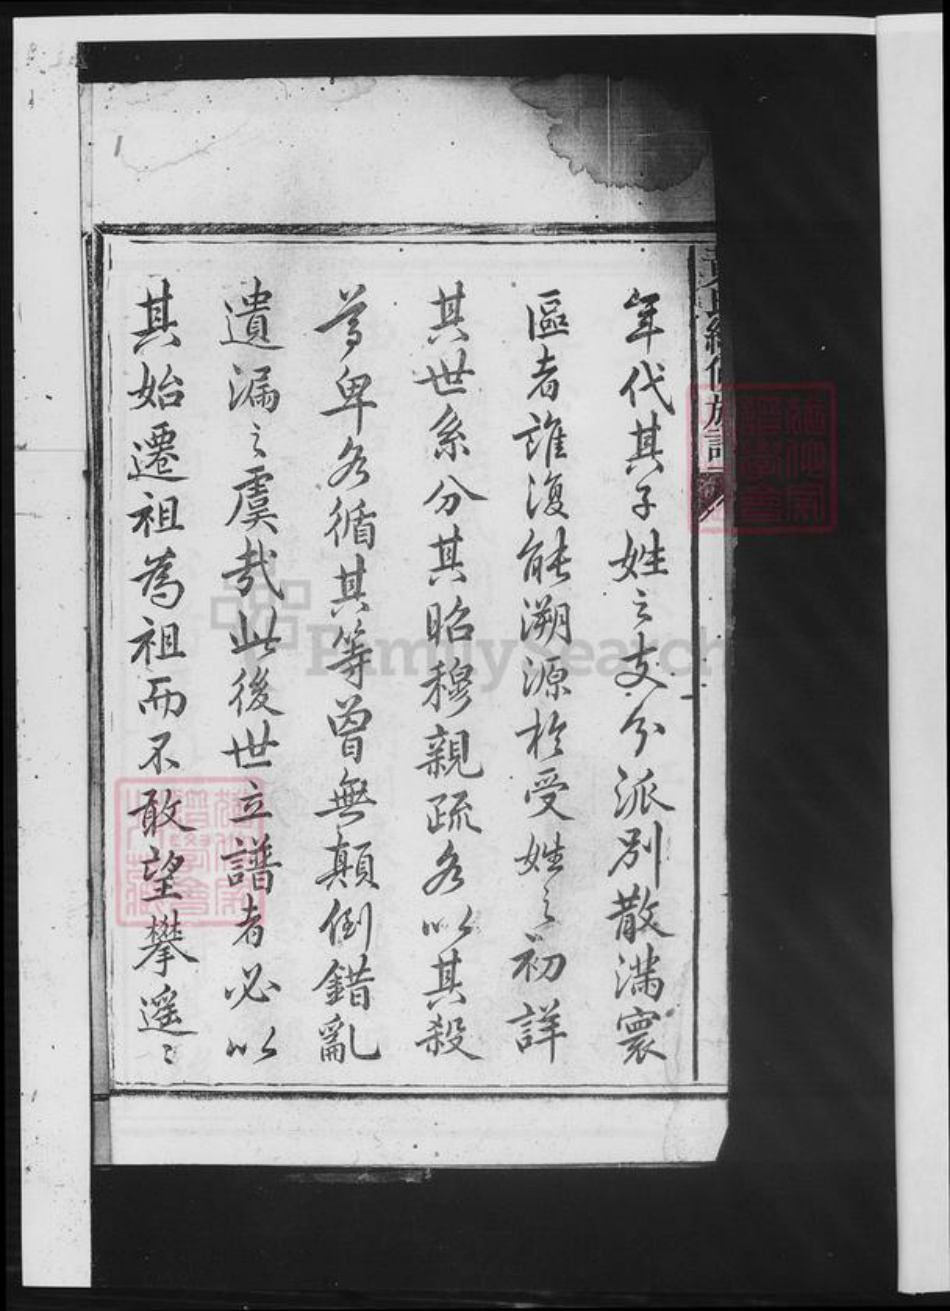 年代其子姓之支分派別散滿寰
區者誰復能溯源於受姓之初詳
其世系分其昭穆親疏各以其殺
尊卑各循其等曾無顛倒錯亂
遺漏之虞哉此後世立譜者必以
其始遷祖為祖而不敢望攀遥〻
FamilySearch